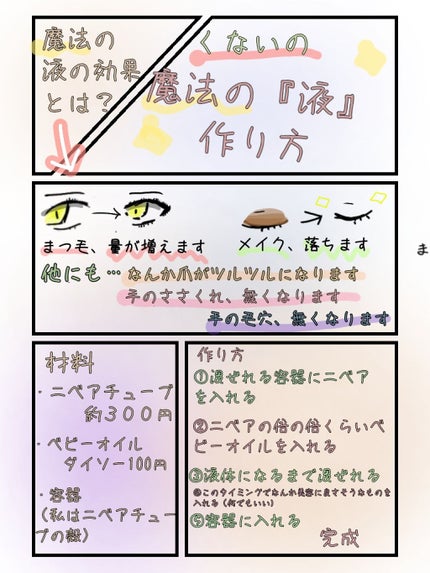 魔法の
液の効果
とは?
くないの
魔法の『液』
作り方
まつ毛、量が増えます
メイク、落ちます
他にも…なんか爪がツルツルになります
手のささくれ、無くなります
手の毛穴、無くなります
ま
材料
・ニベアチューブ
約300円
・ベビーオイル
ダイソー100円
・容器
(私はニベアチュー
ブの殻)
作り方
①混ぜれる容器にニベア
を入れる
②ニベアの倍の倍くらいベ
ビーオイルを入れる
③液体になるまで混ぜれる
④このタイミングでなんか美容に良さそうなものを
入れる(何でもいい)
⑤容器に入れる
完成